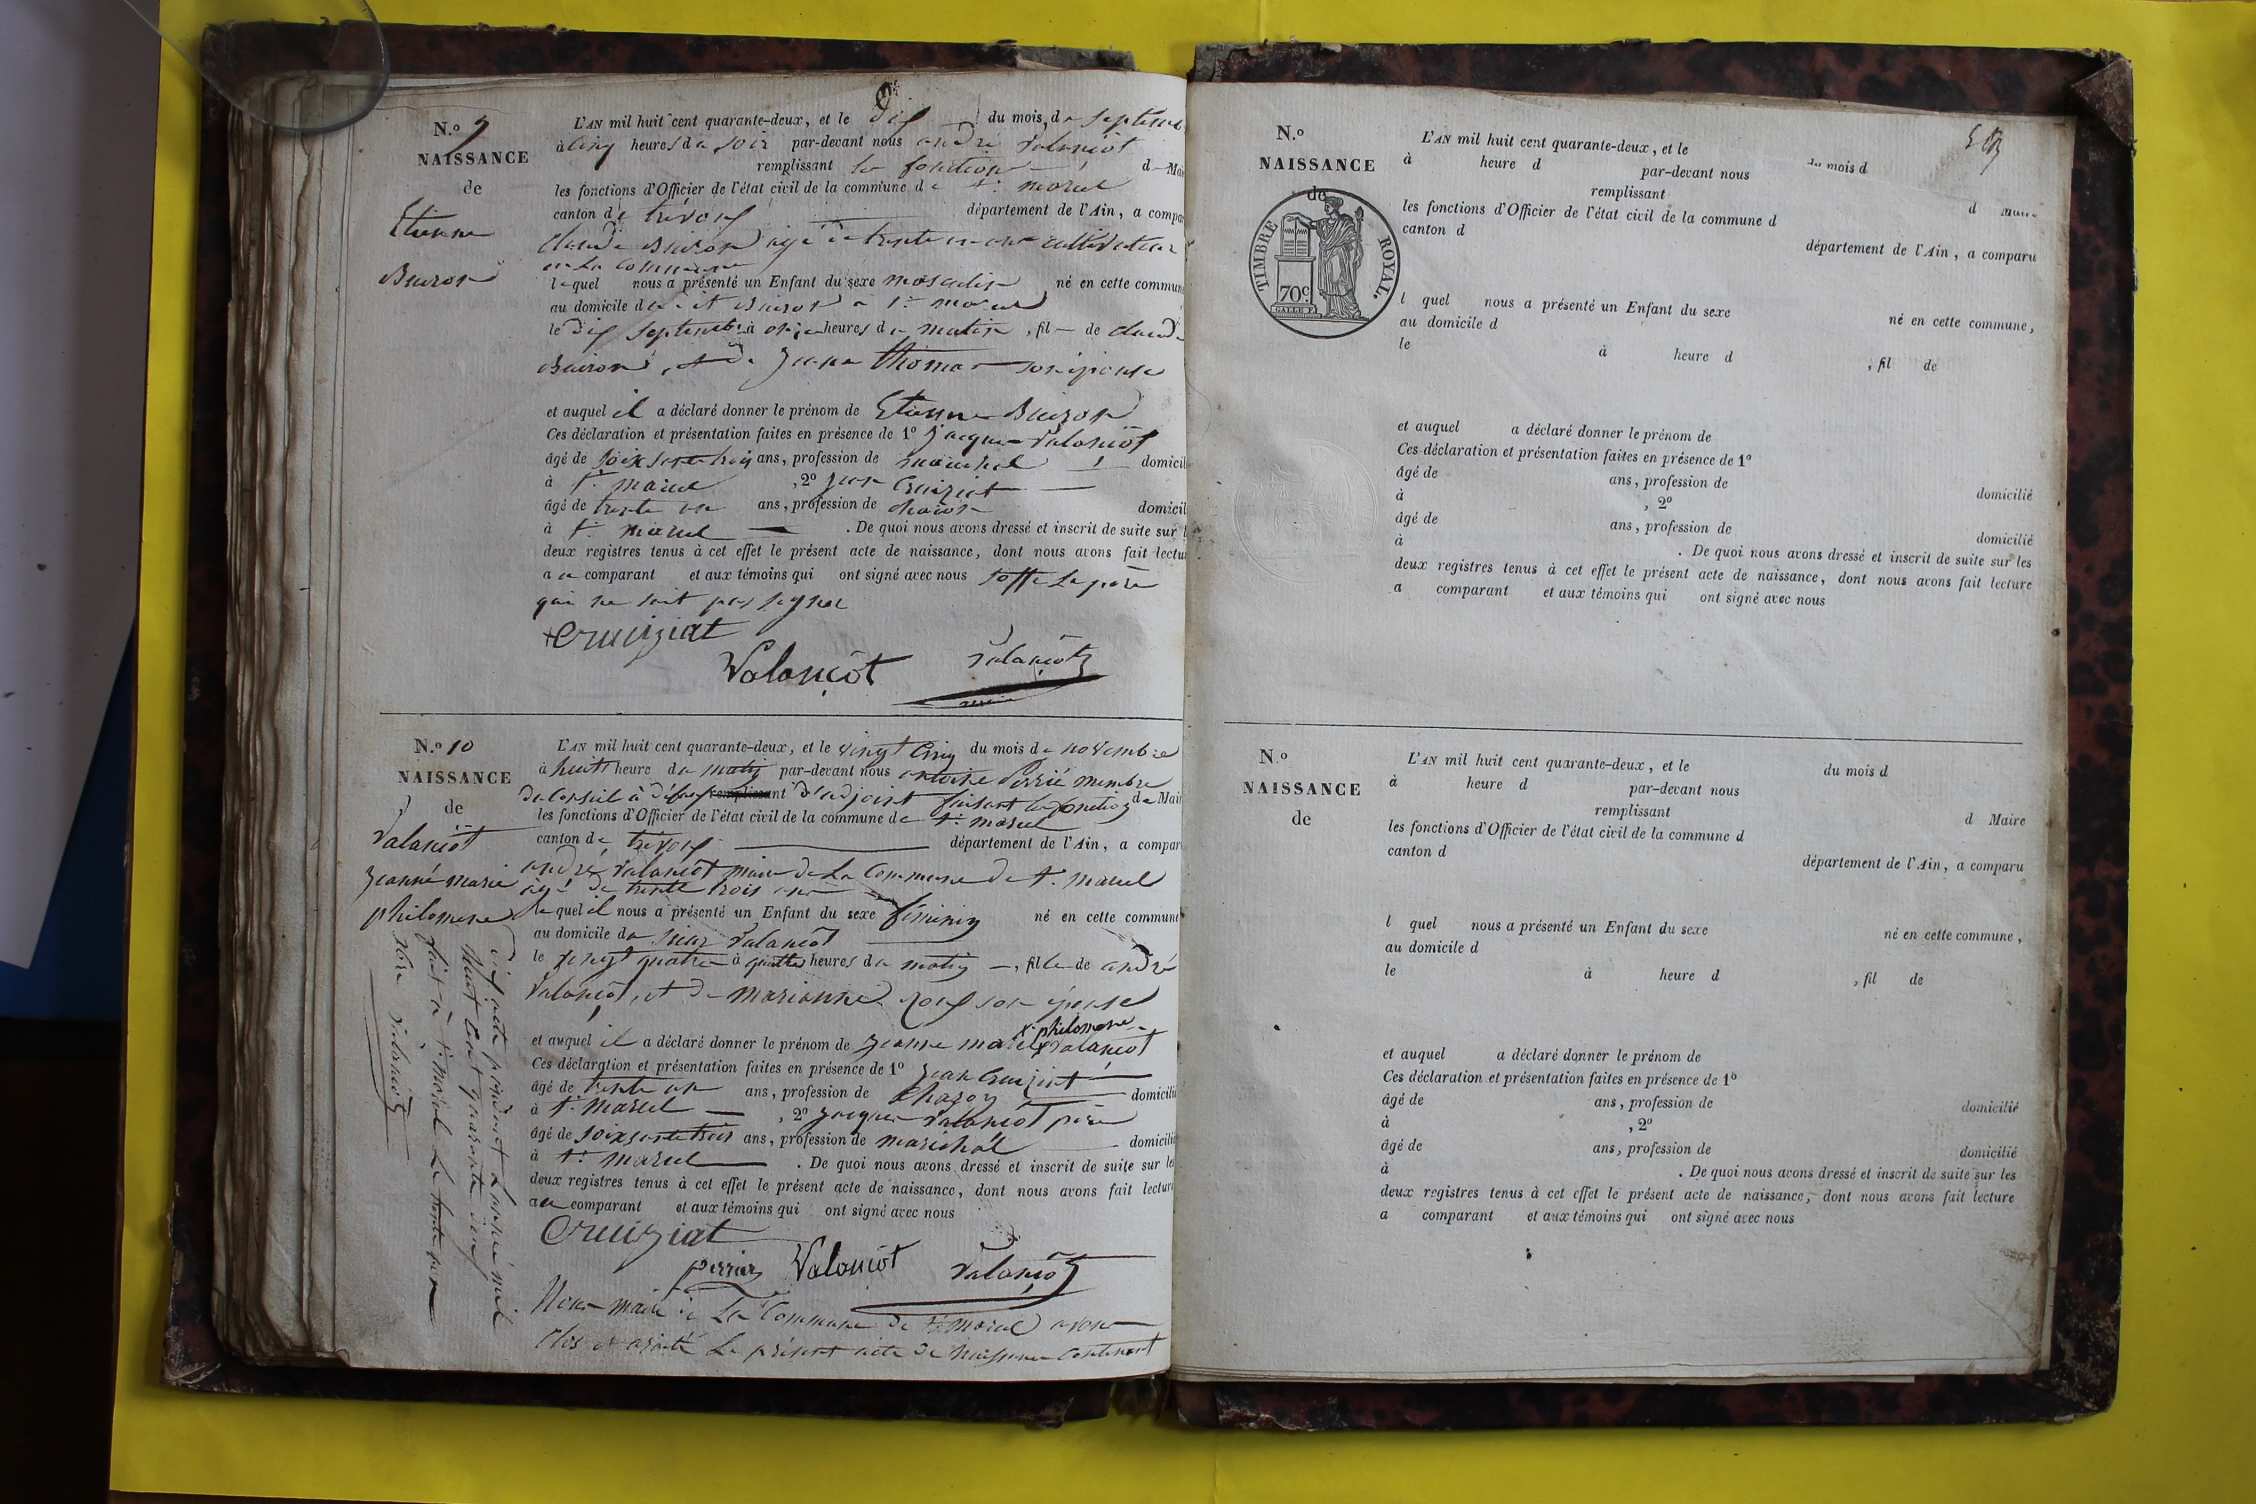 N.º 9
NAISSANCE
de
Etienne
Buiron
L'AN mil huit cent quarante-deux, et le dix du mois de septembre
à cinq heures du soir par-devant nous andré Valançôt
remplissant les fonction de Mai
les fonctions d'Officier de l'état civil de la commune de st. marcel
canton de trévoux département de l'Ain, a compar
claude Buiron agé de trente un ans cultivateur
en la commune
lequel nous a présenté un Enfant du sexe masculin né en cette commune
au domicile du dit Buiron a st. marcel
le dix septembre à onze heures du matin, fil de claude
Buiron, et de jeane thomas son épouse
et auquel il a déclaré donner le prénom de Etienne Buiron
Ces déclaration et présentation faites en présence de 1º jacques Valançôt
âgé de soixsante trois ans, profession de maréchal domicil
à st. marcel, 2º jean Cruiziat
âgé de trente un ans, profession de charon domicil
à st. marcel. De quoi nous avons dressé et inscrit de suite sur l
deux registres tenus à cet effet le présent acte de naissance, dont nous avons fait lectu
au comparant et aux témoins qui ont signé avec nous soffe le père
qui ne sait pas signer
Cruiziat
Valançôt Valançôt
N.º 10
NAISSANCE
de
Valançôt
jeanne marie
philomene
L'AN mil huit cent quarante-deux, et le vingt cinq du mois de novembre
à huit heure du matin par-devant nous antoine Perrié membre
du Conseil à défaux remplissant d'adjoint faisant les fonction de Mair
les fonctions d'Officier de l'état civil de la commune de st. marcel
canton de trévoux département de l'Ain, a compar
andré Valançôt maire de La Commune de st. marcel
âgé de trente trois ans
le quel il nous a présenté un Enfant du sexe féminin né en cette commune
au domicile du sieur Valançôt
le vingt quatre à quattre heures du matin, fille de andré
Valançôt, et de marianne roux son épouse
x philomene
et auquel il a déclaré donner le prénom de jeanne marie x Valançôt
Ces déclaration et présentation faites en présence de 1º jean Cruiziat
âgé de trente un ans, profession de charon domicilié
à st. marcel, 2º jacques Valançôt père
âgé de soixsante trois ans, profession de marichal domicilié
à st. marcel. De quoi nous avons dressé et inscrit de suite sur les
deux registres tenus à cet effet le présent acte de naissance, dont nous avons fait lecture
au comparant et aux témoins qui ont signé avec nous
Cruiziat
perrier Valançôt Valançôt
Nous maire de La Commune de st. marcel avons
clos et arrêté le présent acte de naissance contenant
dix acte pendant l'année mil
huit cent quarante deux
fait à st. marcel le trente un
xbre Valançôt
N.º
NAISSANCE
de
TIMBRE ROYAL.
70c
L'AN mil huit cent quarante-deux, et le du mois d
à heure d par-devant nous
remplissant d Maire
les fonctions d'Officier de l'état civil de la commune d
canton d département de l'Ain, a comparu
l quel nous a présenté un Enfant du sexe né en cette commune,
au domicile d
le à heure d , fil de
et auquel a déclaré donner le prénom de
Ces déclaration et présentation faites en présence de 1º
âgé de ans, profession de domicilié
à , 2º
âgé de ans, profession de domicilié
à . De quoi nous avons dressé et inscrit de suite sur les
deux registres tenus à cet effet le présent acte de naissance, dont nous avons fait lecture
a comparant et aux témoins qui ont signé avec nous
N.º
NAISSANCE
de
L'AN mil huit cent quarante-deux, et le du mois d
à heure d par-devant nous
remplissant d Maire
les fonctions d'Officier de l'état civil de la commune d
canton d département de l'Ain, a comparu
l quel nous a présenté un Enfant du sexe né en cette commune,
au domicile d
le à heure d , fil de
et auquel a déclaré donner le prénom de
Ces déclaration et présentation faites en présence de 1º
âgé de ans, profession de domicilié
à , 2º
âgé de ans, profession de domicilié
à . De quoi nous avons dressé et inscrit de suite sur les
deux registres tenus à cet effet le présent acte de naissance, dont nous avons fait lecture
a comparant et aux témoins qui ont signé avec nous